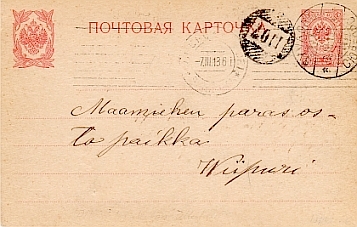 ПОЧТОВАЯ КАРТОЧ
-7.III.13.6
1167
Maamiehen paras os-
to paikka
Wiipuri